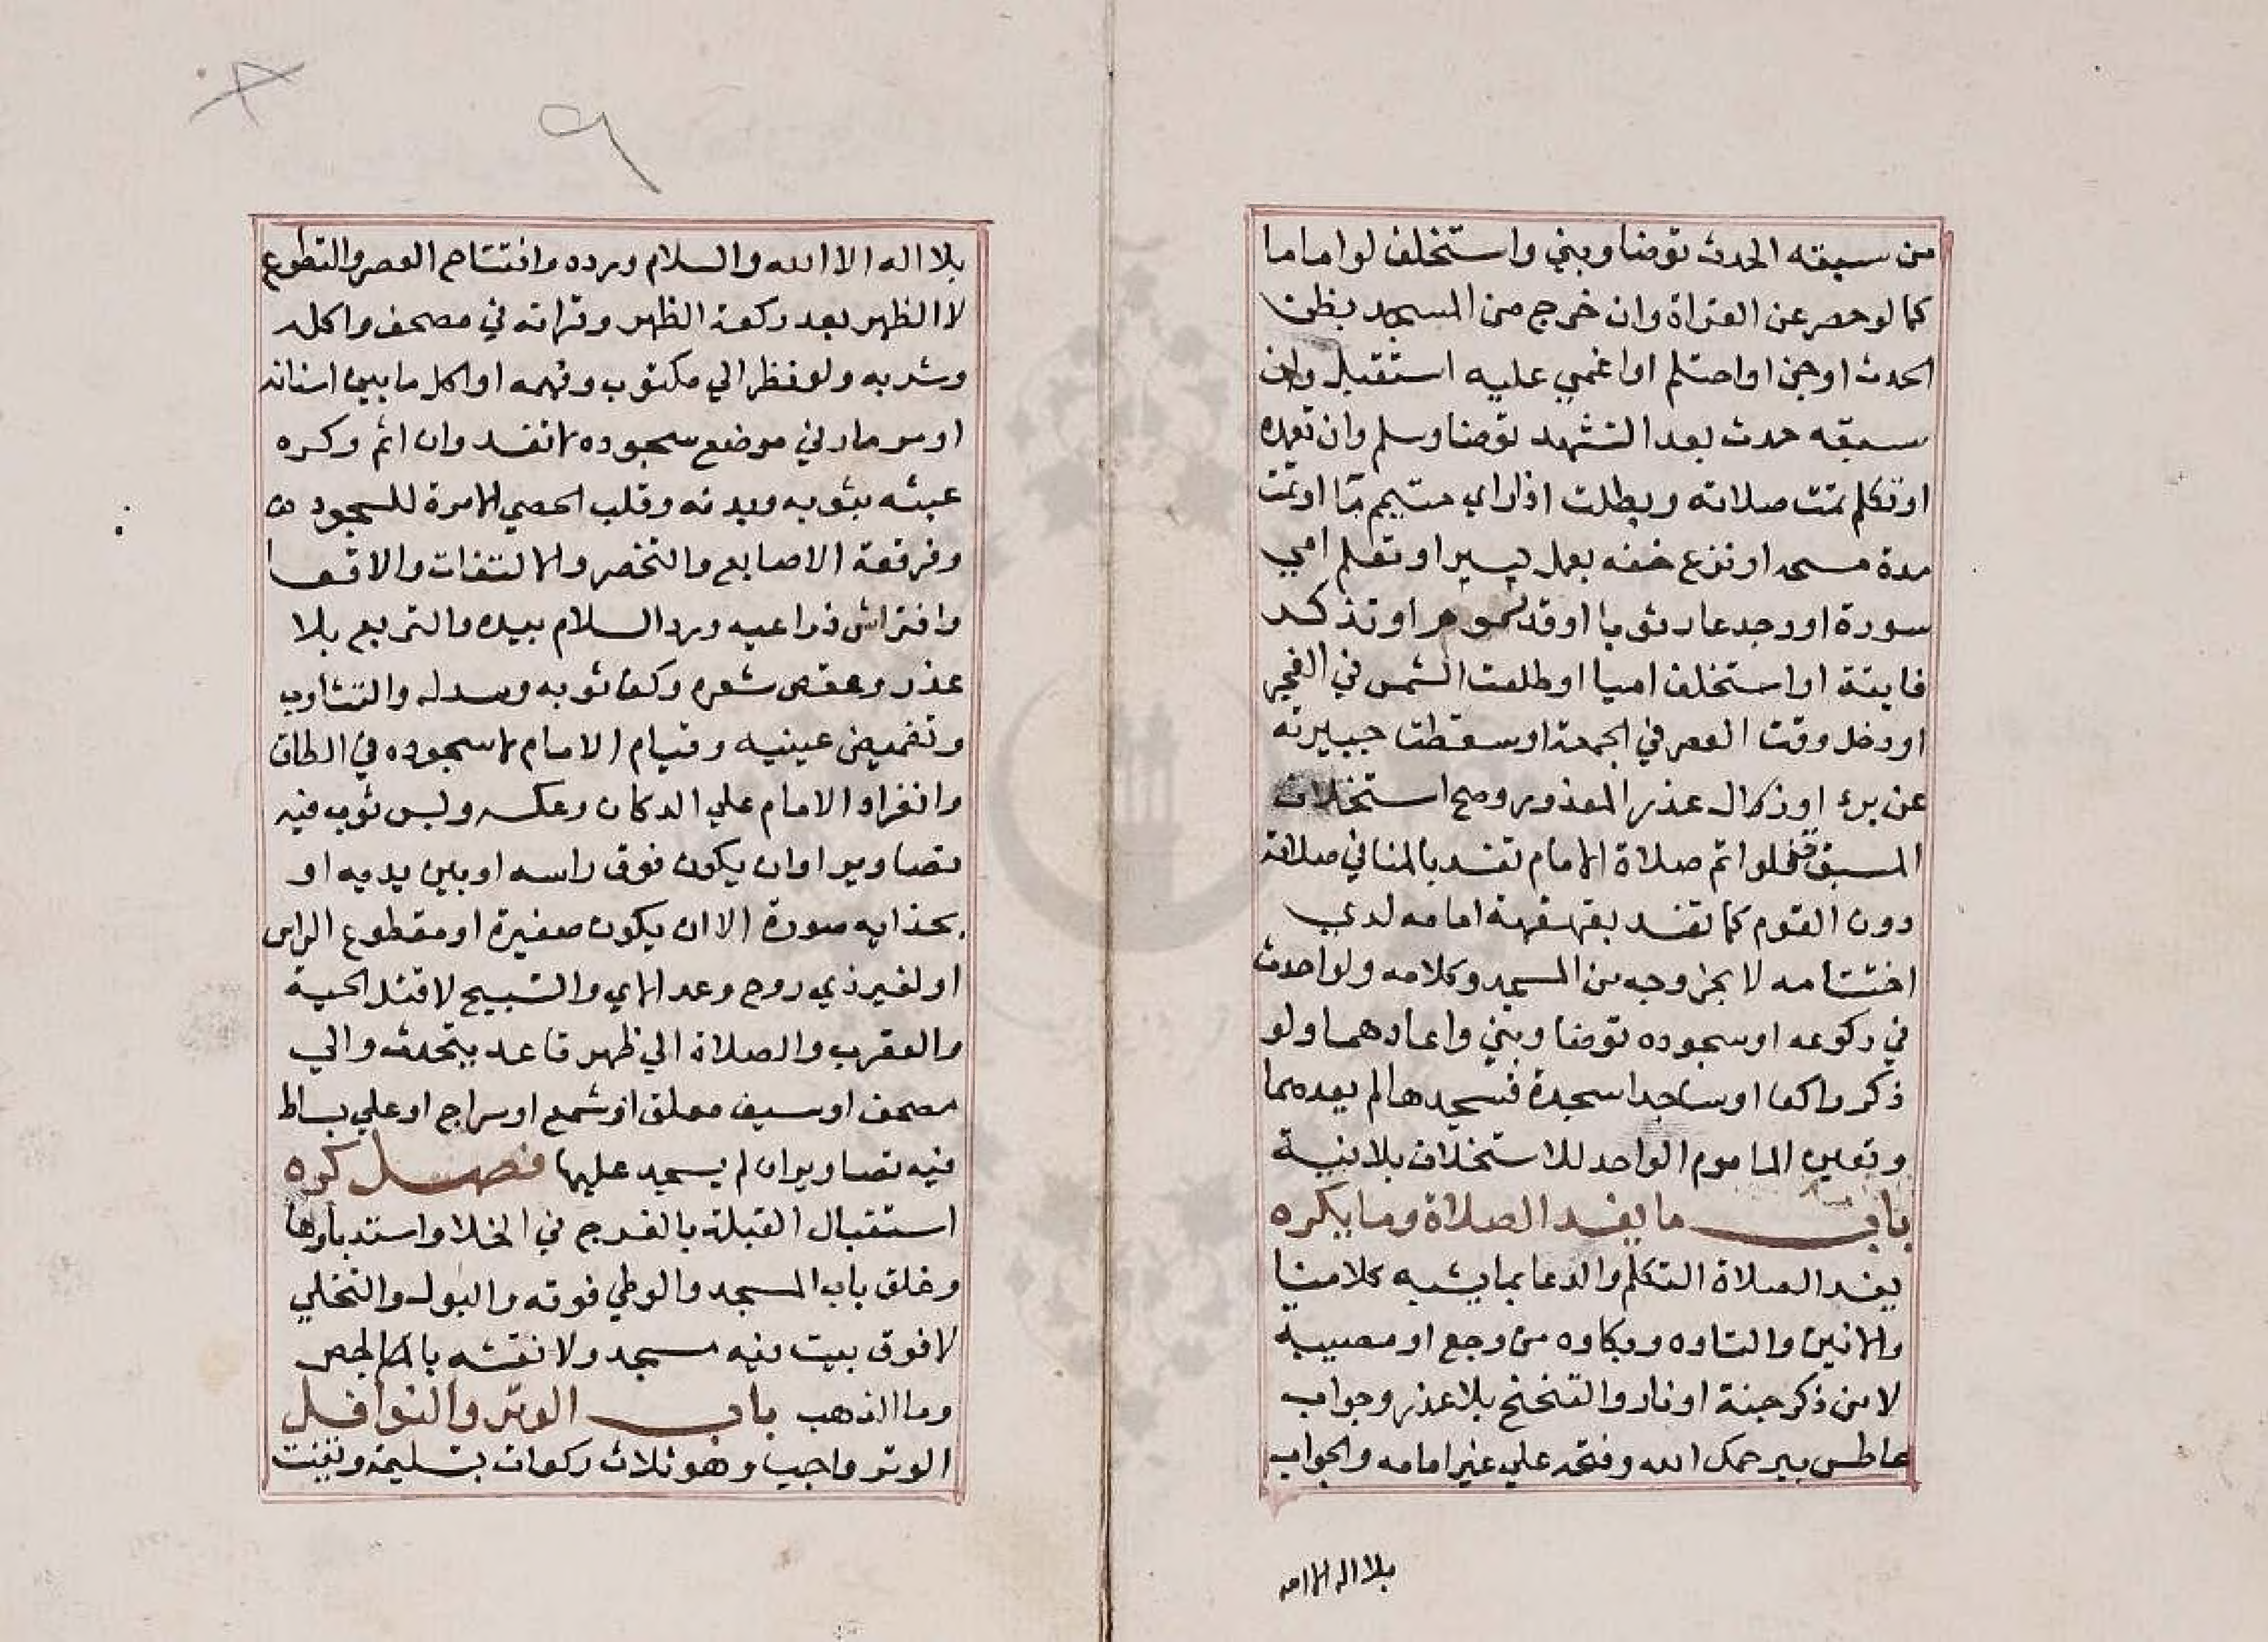 من سبقه الحدث توضا وبني واستخلف لو اماما
كما لو حصر عن القراة وان خرج من المسجد بظن
الحدث او جن او احتلم او اغمي عليه استقبل وان
سبقه حدث بعد التشهد توضا وسلم وان تعمده
او تكلم تمت صلاته وبطلت اذ راي متيمم ما او تمت
مدة مسحه او نزع خفه بعمل يسير او تعلم امي
سورة او وجد عار ثوبا او قدر موم او تذكر
فايتة او استخلف اميا او طلعت الشمس في الفجر
او دخل وقت العصر في الجمعة او سقطت جبيرته
عن برء او زال عذر المعذور وصح استخلاف
المسبوق فلو اتم صلاة الامام تفسد بالمنافي صلاته
دون القوم كما تفسد بقهقهة امامه لدي
اختتامه لا بخروجه من المسجد وكلامه ولو احدث
في ركوعه او سجوده توضا وبني واعادهما ولو
ذكر راكعا او ساجدا سجدة فسجدها لم يعدهما
وتعين الماموم الواحد للاستخلاف بلا نية
باب ما يفسد الصلاة وما يكره
يفسد الصلاة التكلم والدعا بما يشبه كلامنا
والانين والتاوه وبكاوه من وجع او مصيبة
لا من ذكر جنة او نار والتنحنح بلا عذر وجواب
عاطس بيرحمك الله وفتحه علي غير امامه والجواب
بلا اله الا الله
٩
بلا اله الا الله والسلام ورده وافتتاح العصر والتطوع
لا الظهر بعد ركعة الظهر وقراته في مصحف واكله
وشربه ولو نظر الي مكتوب وفهمه او اكل ما بين اسنانه
او مر مار في موضع سجوده لا تفسد وان اثم وكره
عبثه بثوبه وبدنه وقلب الحصي الا مرة للسجود
وفرقعة الاصابع والتخصر والالتفات والاقعا
وافتراش ذراعيه ورد السلام بيده والتربع بلا
عذر وعقص شعره وكف ثوبه وسدله والتثاوب
وتغميض عينيه وقيام الامام لا سجوده في الطاق
وانفراد الامام علي الدكان وعكسه ولبس ثوب فيه
تصاوير وان يكون فوق راسه او بين يديه او
بحذايه صورة الا ان يكون صغيرة او مقطوع الراس
او لغير ذي روح وعد الاي والتسبيح لا قتل الحية
والعقرب والصلاة الي ظهر قاعد يتحدث والي
مصحف او سيف معلق او شمع او سراج او علي بساط
فيه تصاوير ان لم يسجد عليها فصل كره
استقبال القبلة بالفرج في الخلا واستدبارها
وغلق باب المسجد والوطي فوقه والبول والتخلي
لا فوق بيت فيه مسجد ولا نقشه بالجص
وما الذهب باب الوتر والنوافل
الوتر واجب وهو ثلاث ركعات بتسليمة وقنت